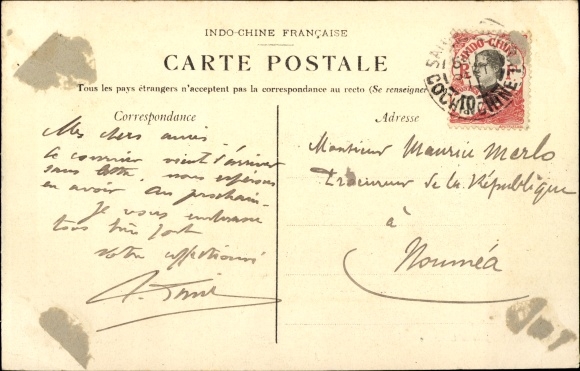 INDO-CHINE FRANÇAISE
CARTE POSTALE
Tous les pays étrangers n'acceptent pas la correspondance au recto (Se renseigner
Correspondance
Mes chers amis
Le courrier vient d'arriver
sans lettre, nous espérons
en avoir au prochain.
Je vous embrasse
tous bien fort
votre affectionné
Adresse
Monsieur Maurice Merlo
Procureur de la République
à
Nouméa
INDO-CHINE
10